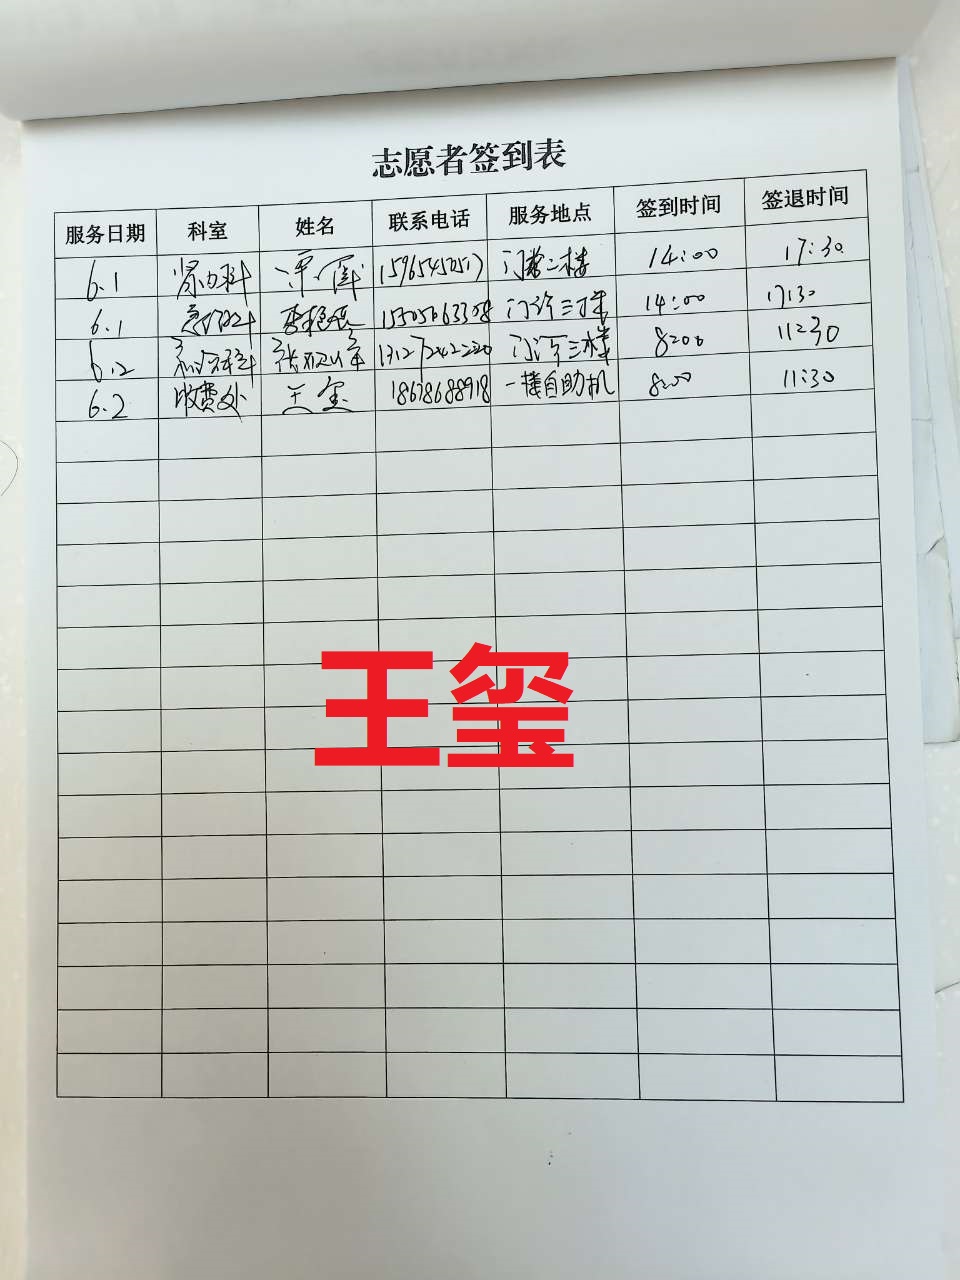 志愿者签到表
服务日期 科室 姓名 联系电话 服务地点 签到时间 签退时间
6.1 肾内科 15965452517 门诊二楼 14:00 17:30
6.1 门诊三楼 14:00 17:30
6.2 13127242220 门诊三楼 8:00 11:30
6.2 收费处 王玺 18678688918 一楼自助机 8:00 11:30
王玺